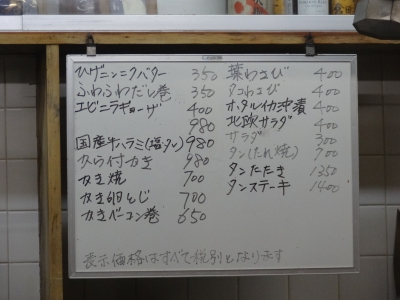 ひげニンニクバター 350
ふわふわだし巻 350
エビニラギョーザ 400
980
国産牛ハラミ(塩タン) 980
から付かき 980
かき焼 700
かき卵とじ 700
かきベーコン巻 650
葉わさび 400
タコわさび 400
ホタルイカ沖漬 400
北欧サラダ 400
サラダ 300
タン(たれ焼) 700
タンたたき 1350
タンステーキ 1400
表示価格はすべて税別となります